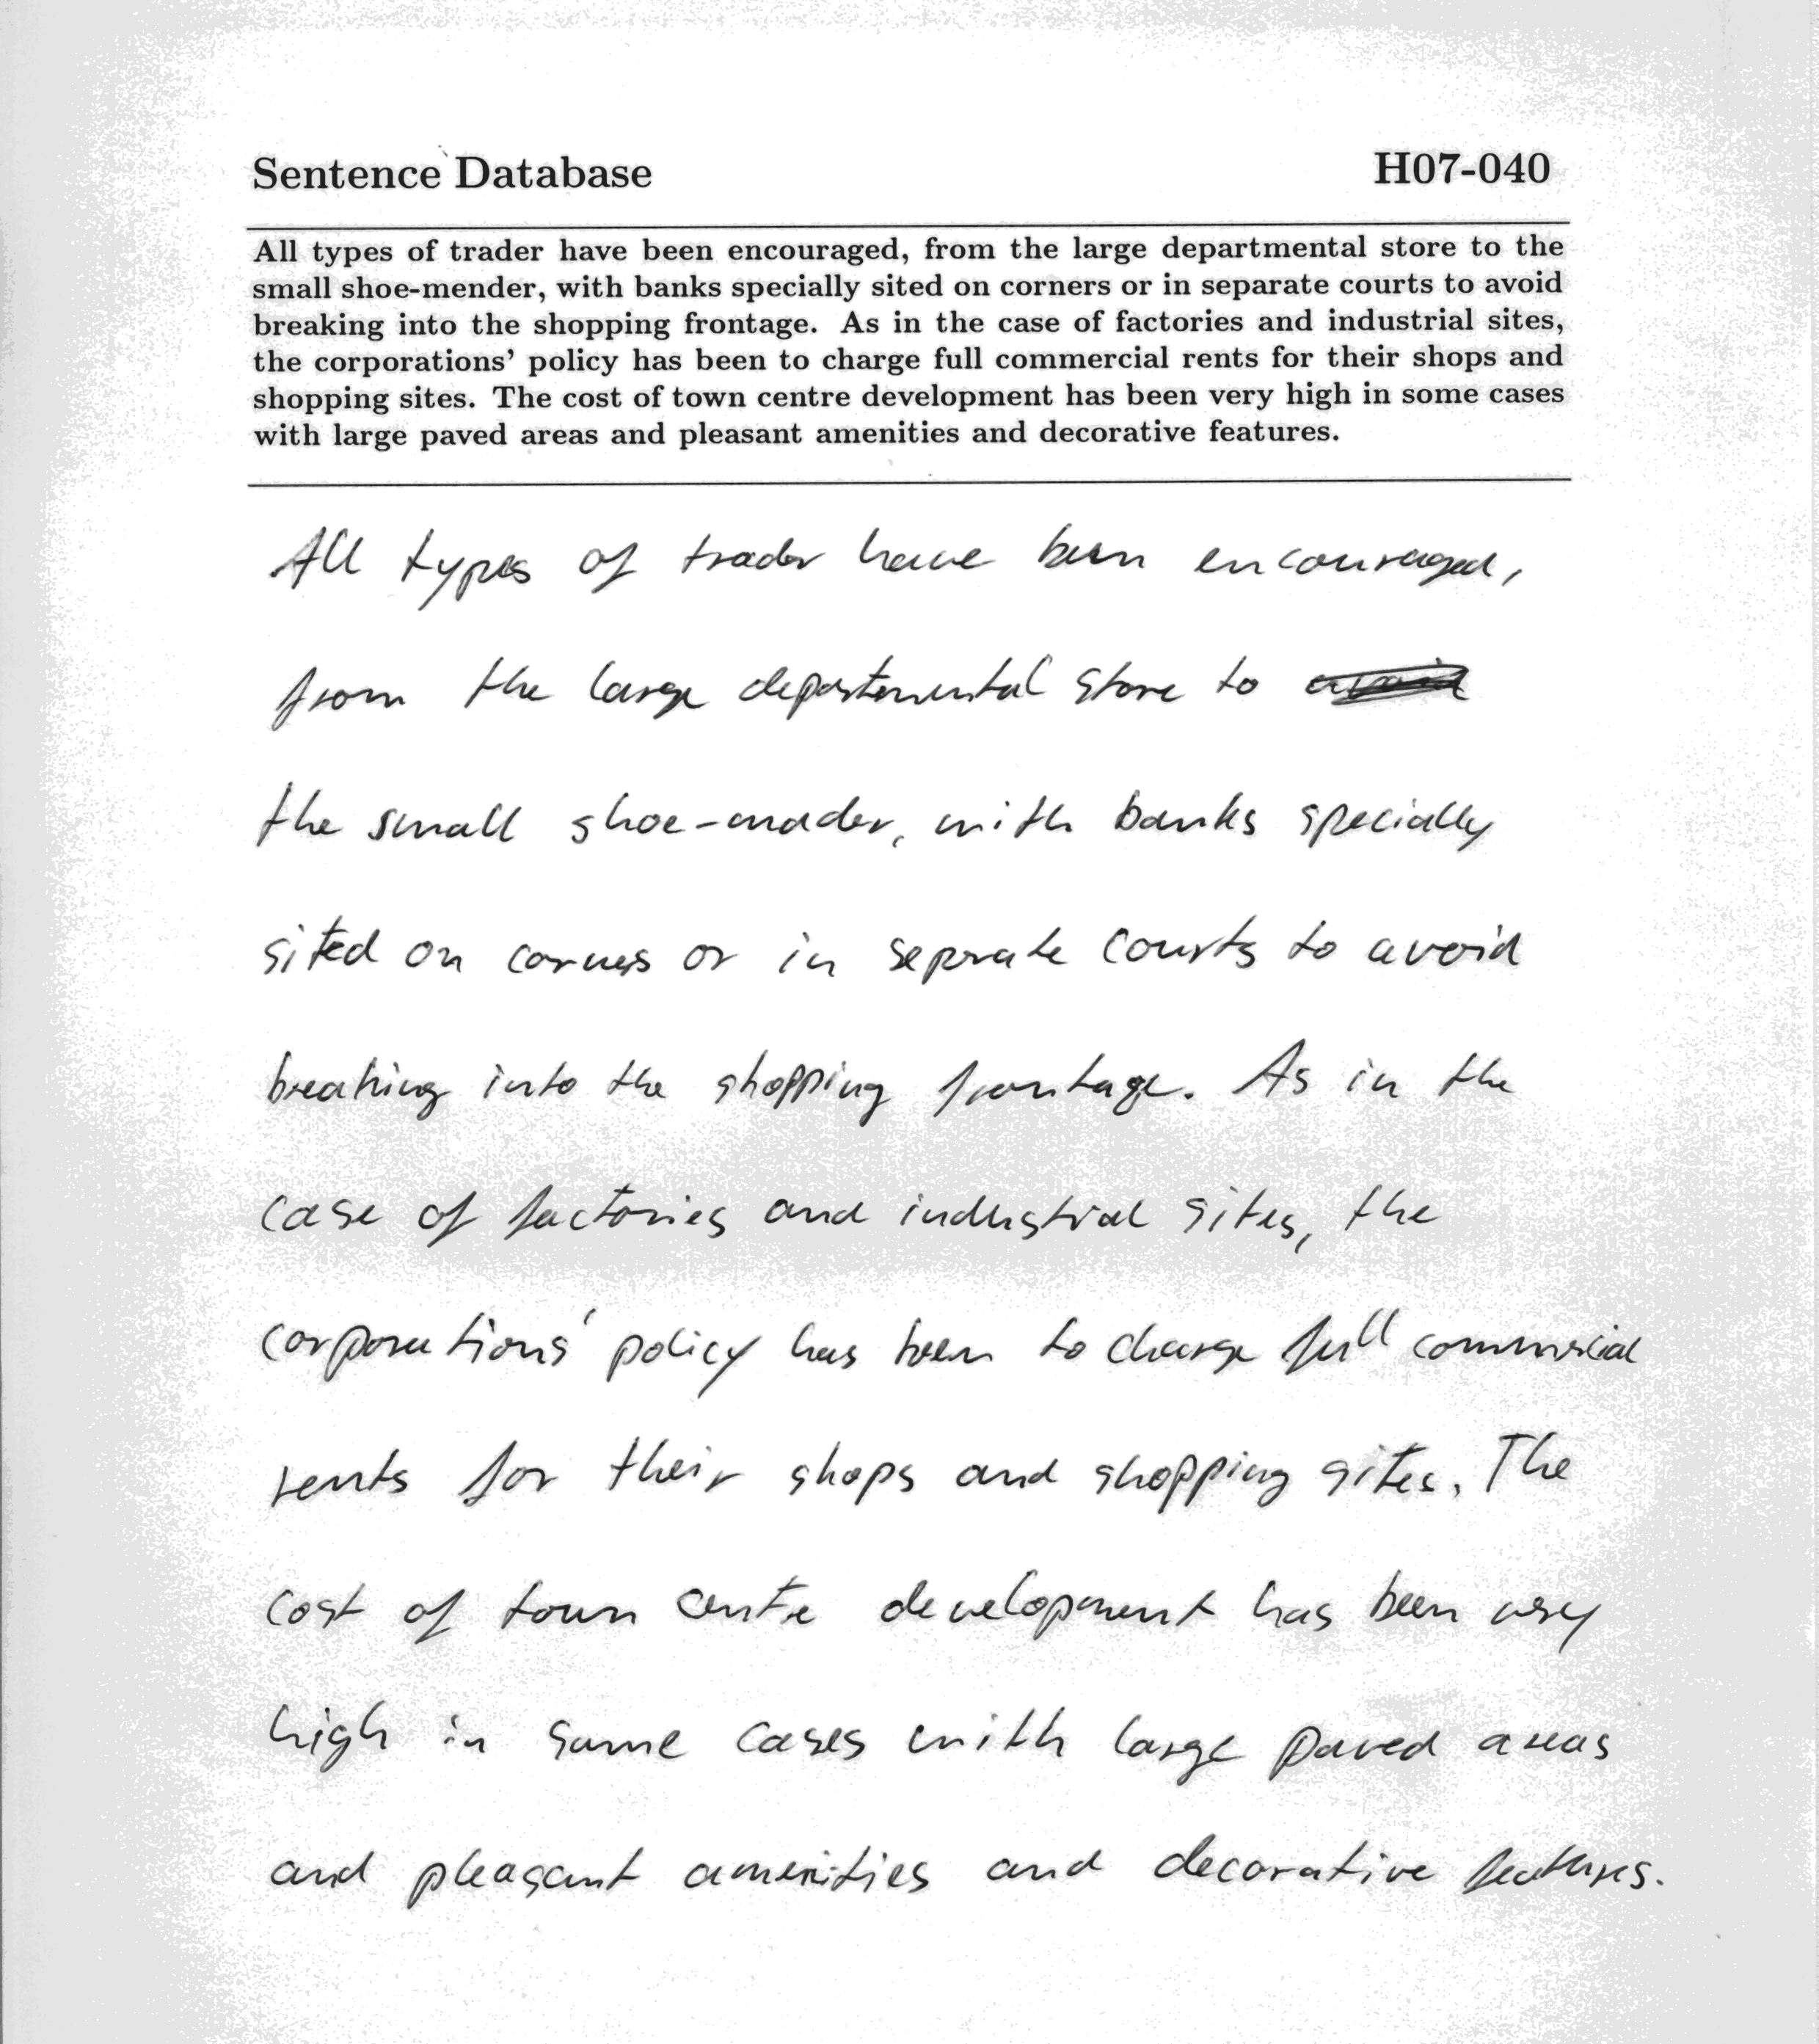 Sentence Database H07-040
All types of trader have been encouraged, from the large departmental store to the
small shoe-mender, with banks specially sited on corners or in separate courts to avoid
breaking into the shopping frontage. As in the case of factories and industrial sites,
the corporations' policy has been to charge full commercial rents for their shops and
shopping sites. The cost of town centre development has been very high in some cases
with large paved areas and pleasant amenities and decorative features.
All types of trader have been encouraged,
from the large departemental store to
the small shoe-mader, with banks specially
sited on corners or in seprate courts to avoid
breaking into the shopping frontage. As in the
case of factories and industrial sites, the
corporations' policy has been to charge full commercial
rents for their shops and shopping sites. The
cost of town centre development has been very
high in some cases with large paved areas
and pleasant amenities and decorative features.